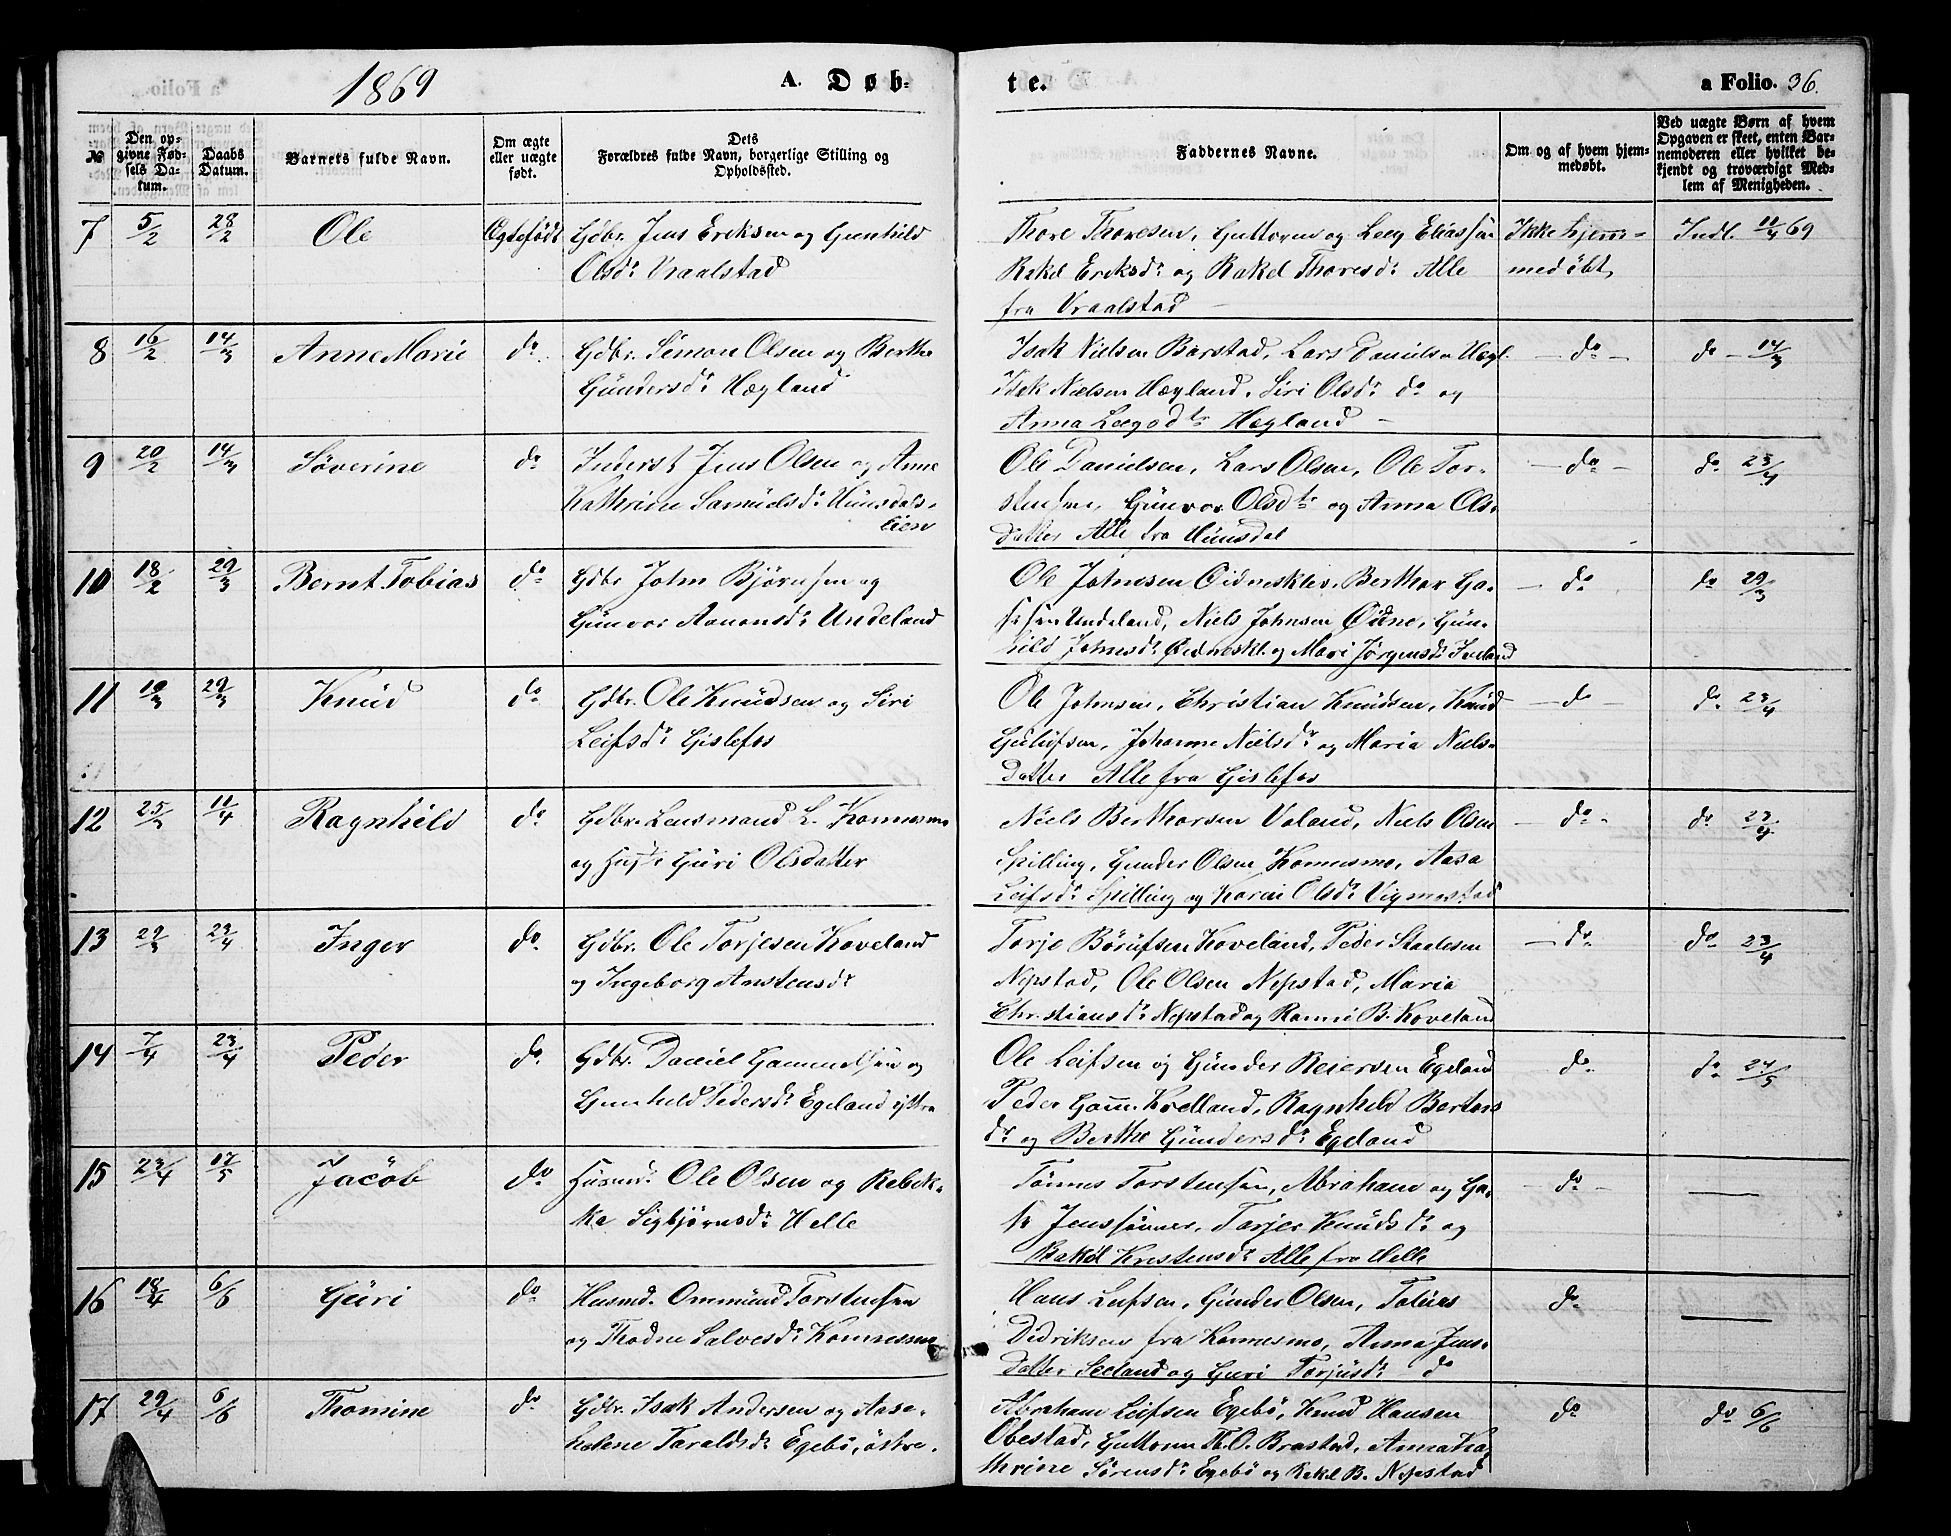 1869
A. Døb-
te.
a Folio. 36.
№
Den op-
givne Fød-
sels Da-
tum.
Daabs
Datum.
Barnets fulde Navn.
Om ægte
eller uægte
født.
Dets
Forældres fulde Navn, borgerlige Stilling og
Opholdssted.
Faddernes Navne.
Om og af hvem hjem-
medøbt.
Ved uægte Børn af hvem
Opgaven er skeet, enten Bar-
nemoderen eller hvilket be-
kjendt og troværdigt Med-
lem af Menigheden.
7 5/2 28/2 Ole Ægtefødt Gdbr. Jens Eriksen og Gunhild
Olsdr Vraalstad
Thore Thoresen, Guttorm og Leeg Eliassen
Rakel Eriksdr og Rakel Thoresdr Alle
fra Vraalstad
Ikke hjem-
medøbt,
Indl. 11/4 69
8 16/2 14/3 Anne Marie do Gdbr. Simon Olsen og Berthe
Gundersdr Høgland
Isak Nielsen Barstad, Lars Danielsn Høgl.
Isak Nielsen Høgland, Siri Olsdr do og
Anna Leegsdtr Høgland
do
do 14/3
9 20/2 14/3 Søverine do Inderst Jens Olsen og Anne
Kathrine Samuelsdr Huusdals-
lien
Ole Danielsen, Lars Olsen, Ole Tor-
stensen, Gunvor Olsdtr og Anna Ols-
datter Alle fra Huusdal
do
do 23/4
10 18/2 29/3 Bernt Tobias do Gdbr John Bjørnsen og
Gunvor Aanonsdr Undeland
Ole Johnsen Øidnesklev, Berthor Ga-
Undeland, Niels Johnsen Øidne, Gun-
hild Johnsdr Øidneskl. og Mari Jørgensdr Iveland
do
do 29/3
11 19/3 29/3 Knud do Gdbr. Ole Knudsen og Siri
Leifsdr Gislefos
Ole Johnsen, Christian Knudsen, Knud
Gulufsen, Johanne Nielsdr og Maria Niels-
datter Alle fra Gislefos
do
do 23/4
12 25/3 11/4 Ragnhild do Gdbr. Lensmand L. Konnesmo
og Hustr. Guri Olsdatter
Niels Berthorsen Valand, Niels Olsen
Spilling, Gunder Olsen Konnesmo, Aasa
Leifsdr Spilling og Karen Olsdr Vigmostad
do
do 23/4
13 29/3 23/4 Inger do Gdbr. Ole Torjesen Koveland
og Ingeborg Anstensdr
Torje Børufsen Koveland, Peder Staalesen
Nepstad, Ole Olsen Nepstad, Maria
Christiansdr Nepstad og Ranni B. Koveland
do
do 23/4
14 7/4 23/4 Peder do Gdbr. Daniel Gammelsen og
Gunhild Pedersdr Egeland østre
Ole Leifsen og Gunder Reiersen Egeland
Peder Gam. Kvelland, Ragnhild Bertors
dr og Berthe Gundersdr Egeland
do
do 24/5
15 23/4 17/5 Jacob do Husmd. Ole Olsen og Rebek-
ka Sigbjørnsdr Helle
Tønnes Torstensen, Abraham og
Jenssønner, Torjer Knudsdr og
Rakel Kristensdr Alle fra Helle
do
16 18/4 6/6 Guri do Husmd. Ommund Torstensen
og Thodne Salvesdr Konnesmo
Hans Leifsen, Gunder Olsen, Tobias
Didriksen fra Konnesmo, Anna Jens-
datter Seeland og Guri Torjusdr do
do
17 29/4 6/6 Thomine do Gdbr. Isak Andersen og Aase
Helene Taraldsdr Egebø, østre.
Abraham Leifsen Egebø, Knud Hansen
Obestad, Guttorm Th. O. Brastad, Anna Ka-
thrine Sørensdr Egebø og Rakel B. Nepstad
do
do 6/6